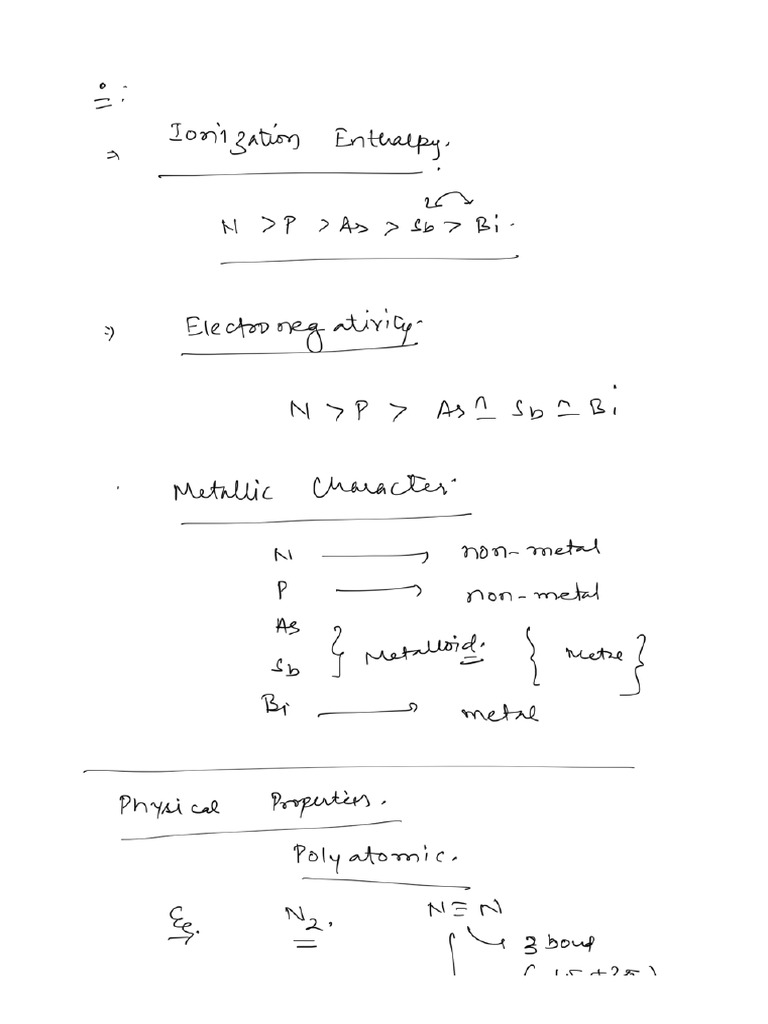 ⇒ Ionization Enthalpy.
N > P > As > Sb > Bi.
⇒ Electronegativity.
N > P > As ≃ Sb ≃ Bi
Metallic Character.
N → non-metal
P → non-metal
As
Sb } Metalloid. {
Bi → metal
Physical Properties.
Polyatomic.
Eg. N2. N≡N
3 bond